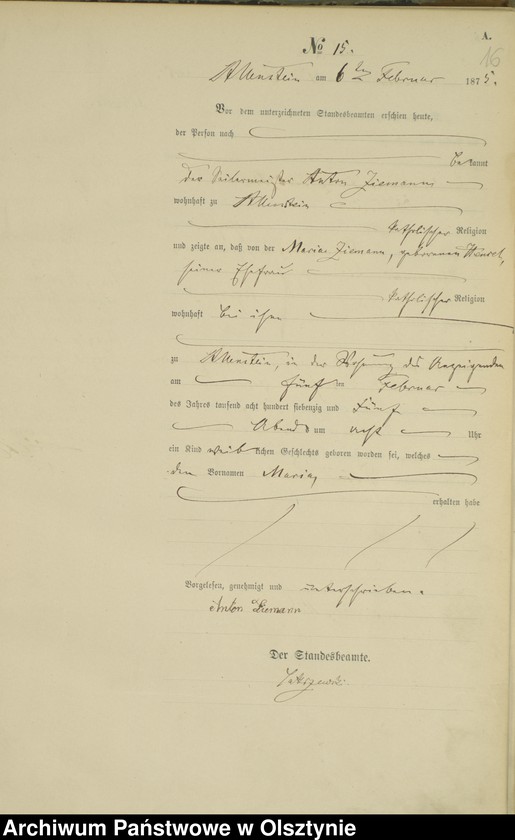 A.
16
No 15.
Allenstein am 6 ten Februar 1875.
Vor dem unterzeichneten Standesbeamten erschien heute,
der Person nach
bekannt
der Seilermeister Anton Ziemann
wohnhaft zu Allenstein
katholischer Religion
und zeigte an, daß von der Maria Ziemann, geborenen
seiner Ehefrau
katholischer Religion
wohnhaft bei ihm
zu Allenstein, in der Wohnung des Anzeigenden
am fünf ten Februar
des Jahres tausend acht hundert siebenzig und fünf
Abends um acht Uhr
ein Kind weiblichen Geschlechts geboren worden sei, welches
den Vornamen Maria
erhalten habe
Vorgelesen, genehmigt und unterschrieben.
Anton Ziemann
Der Standesbeamte.
Archiwum Państwowe w Olsztynie